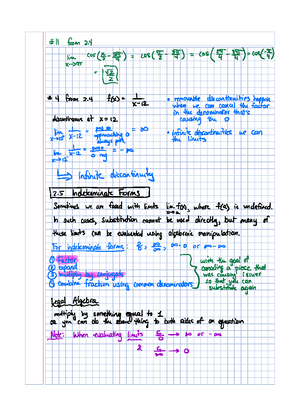 #11 from 2.4
lim cos(π/2 - 3π/4) = cos(π/2 - 3π/4) = cos(2π/4 - 3π/4) = cos(-π/4)
= √2/2
#4 from 2.4 f(x) = 1/x-12
discontinuous at x = 12
lim 1/x-12 = = ∞
approaching 0
lim 1/x-12 = = -∞
0 neg
• removable discontinuities happen
when we can cancel the factor
in the denominator that's
causing the 0
• infinite discontinuities we can
the limits
Infinite discontinuity
2.5 Indeterminate Forms
Sometimes we are faced with limits lim f(x), where f(a) is undefined.
In such cases, substitution cannot be used directly, but many of
these limits can be evaluated using algebraic manipulation.
For indeterminate forms: 0/0, ∞/∞, ∞·0 or ∞-∞
① factor
② expand
③ multiply by conjugate
④ combine fraction using common denominators
with the goal of
canceling a piece that
was causing issues
so that you can
substitute again
Legal Algebra
multiply by something equal to 1
or you can do the same thing to both sides of an equation
Note: When evaluating limits c/0 → ∞ or -∞
2 c/∞ → 0